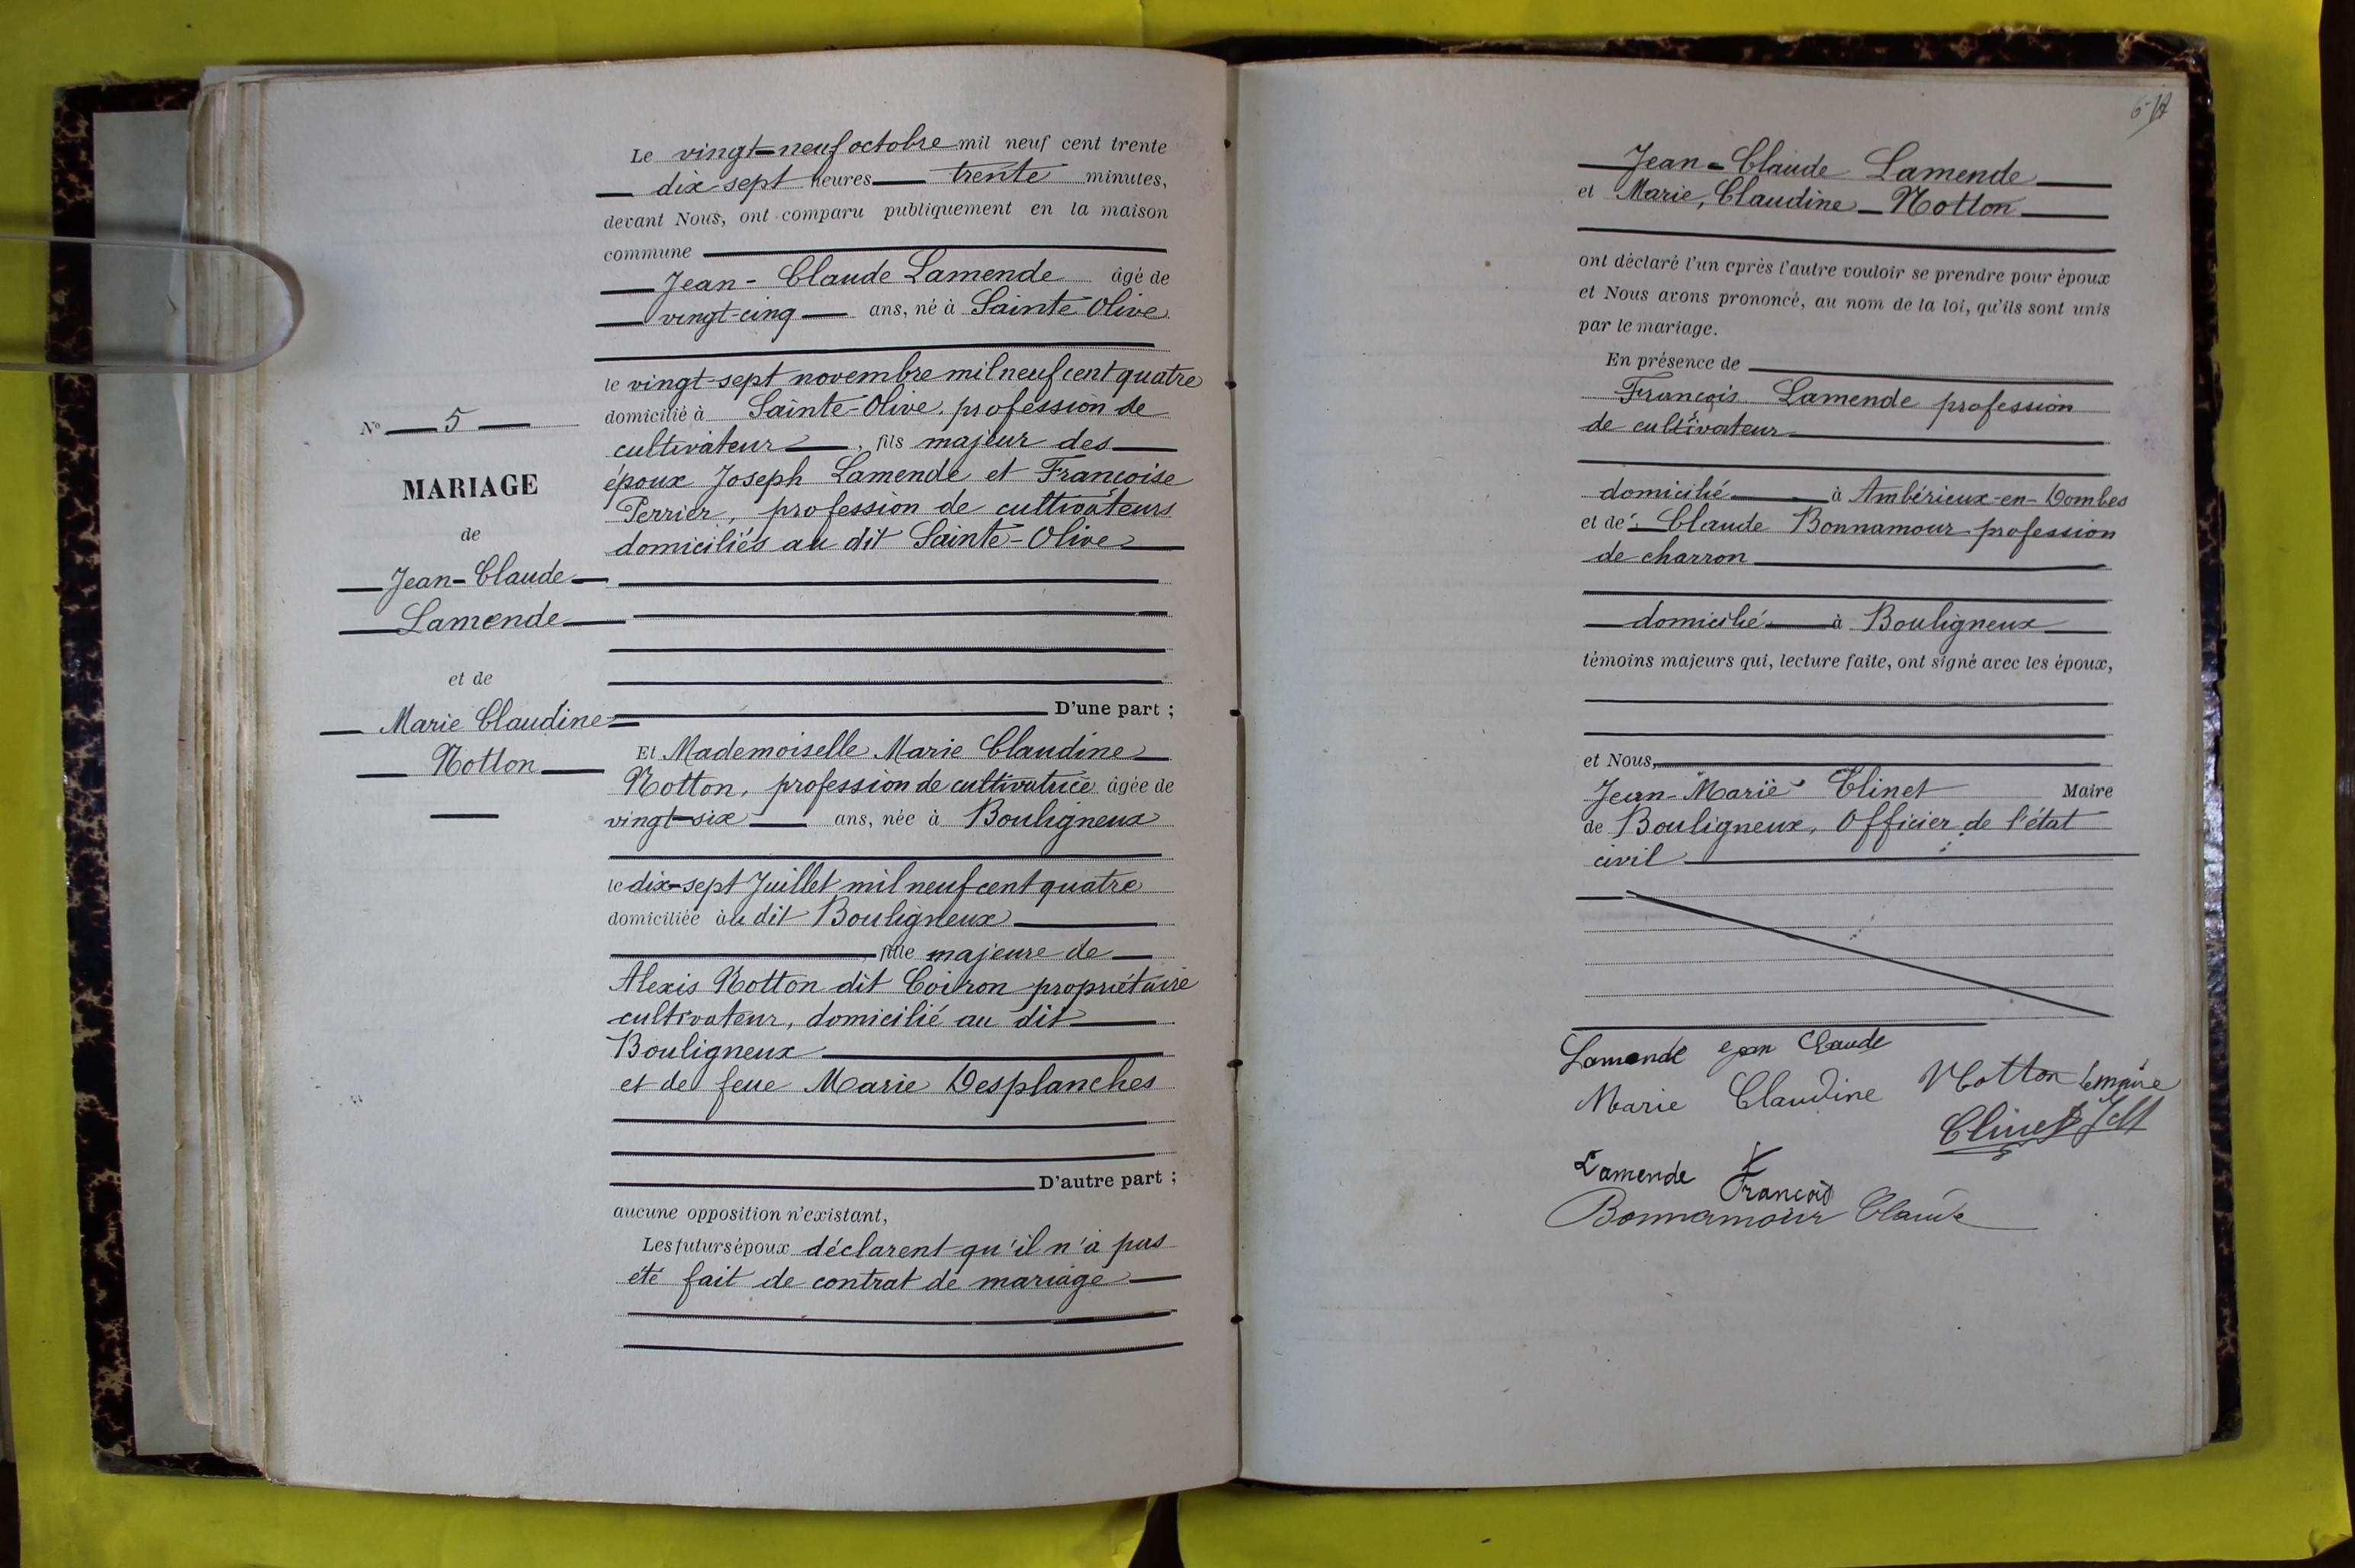 Le vingt-neuf octobre mil neuf cent trente
dix-sept heures trente minutes,
devant Nous, ont comparu publiquement en la maison
commune
Jean-Claude Lamende âgé de
vingt-cinq ans, né à Sainte Olive
le vingt-sept novembre mil neuf cent quatre
domicilié à Sainte-Olive, profession de
cultivateur, fils majeur des
époux Joseph Lamende et Françoise
Perrier, profession de cultivateurs
domiciliés au dit Sainte-Olive
D'une part ;
Et Mademoiselle Marie Claudine
Notton, profession de cultivatrice âgée de
vingt-six ans, née à Bouligneux
le dix-sept Juillet mil neuf cent quatre
domiciliée au dit Bouligneux
fille majeure de
Alexis Notton dit Coiron propriétaire
cultivateur, domicilié au dit
Bouligneux
et de feue Marie Desplanches
D'autre part ;
aucune opposition n'existant,
Les futurs époux déclarent qu'il n'a pas
été fait de contrat de mariage
N° 5
MARIAGE
de
Jean-Claude
Lamende
et de
Marie Claudine
Notton
Jean-Claude Lamende
et Marie, Claudine Notton
ont déclaré l'un après l'autre vouloir se prendre pour époux
et Nous avons prononcé, au nom de la loi, qu'ils sont unis
par le mariage.
En présence de
François Lamende profession
de cultivateur
domicilié à Ambérieux-en-Dombes
et de Claude Bonnamour profession
de charron
domicilié à Bouligneux
témoins majeurs qui, lecture faite, ont signé avec les époux,
et Nous,
Jean-Marie Clinet Maire
de Bouligneux, Officier de l'état
civil
Lamende Jean Claude
Marie Claudine Notton le maire
Clinet JM
Lamende François
Bonnamour Claude